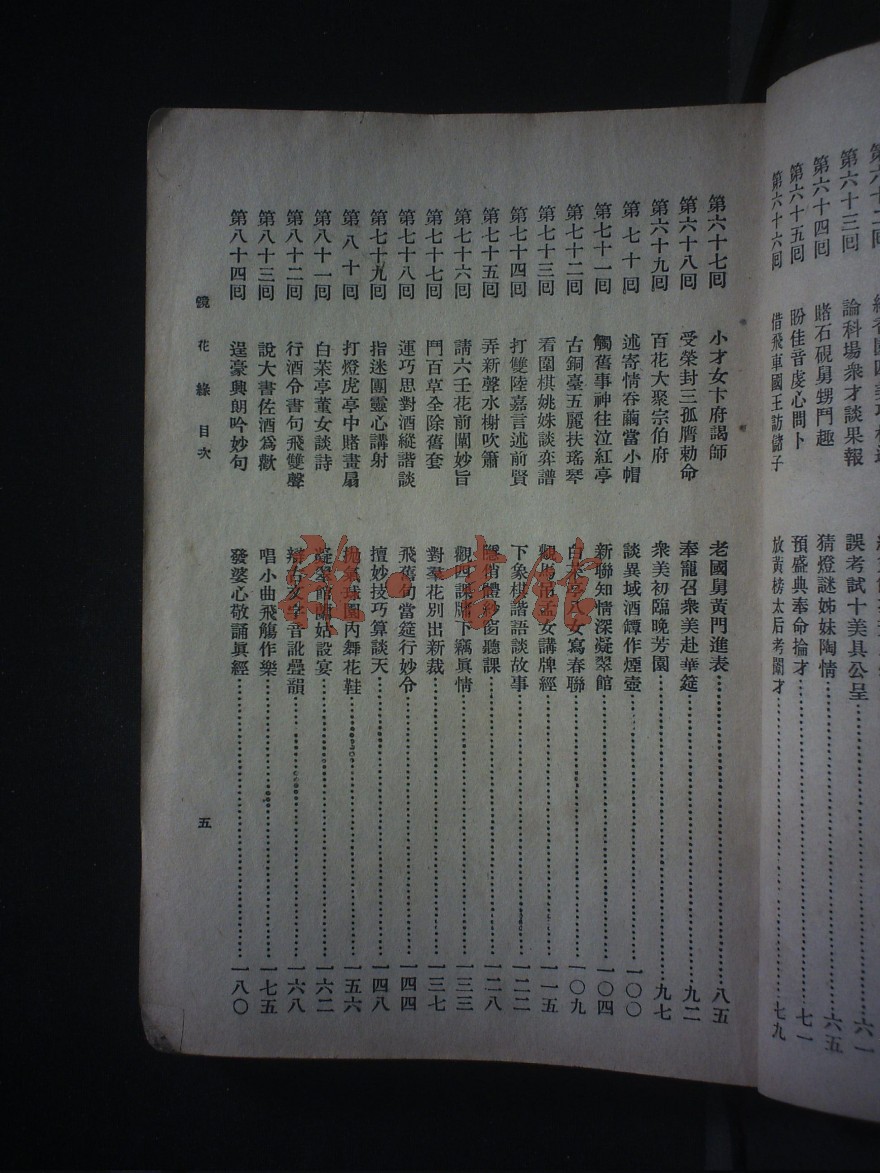 論科場衆才談果報 誤考試十美具公呈 六一
第六十三回
第六十四回 賭石硯舅甥鬥趣 猜燈謎姊妹陶情 六五
第六十五回 盼佳音虔心問卜 預盛典奉命掄才 七一
第六十六回 借飛車國王訪儲子 放黃榜太后考閨才 七九
第六十七回 小才女卞府謁師 老國舅黃門進表 八五
第六十八回 受榮封三孤膺勅命 奉寵召衆美赴華筵 九二
第六十九回 百花大聚宗伯府 衆美初臨晚芳園 九七
第七十回 述奇情呑繭當小帽 談異域酒罈作煙壺 一〇〇
第七十一回 觸舊事神往泣紅亭 新聯知情深凝翠館 一〇四
第七十二回 古銅臺五麗扶瑤琴 白朮亭八女寫春聯 一〇九
第七十三回 看圍棋姚姝談弈譜 觀馬弔孟女講牌經 一一五
第七十四回 打雙陸嘉言述前賢 下象棋諧語談故事 一二二
第七十五回 弄新聲水榭吹簫 隱俏體紗窗聽課 一二八
第七十六回 講六壬花前闡妙旨 觀四課牖下竊眞情 一三三
第七十七回 鬥百草全除舊套 對羣花別出新裁 一三七
第七十八回 運巧思對酒縱諧談 飛舊句當筵行妙令 一四四
第七十九回 指迷團靈心講射 擅妙技巧算談天 一四八
第八十回 打燈虎亭中賭畫扇 拋氣球園內舞花鞋 一五六
第八十一回 白茉亭董女談詩 凝翠館蘭姑設宴 一六二
第八十二回 行酒令書句飛雙聲 辯古文字音訛疊韻 一六八
第八十三回 說大書佐酒爲歡 唱小曲飛觴作樂 一七五
第八十四回 逞豪興朗吟妙句 發婆心敬誦眞經 一八〇
鏡花緣 目次 五